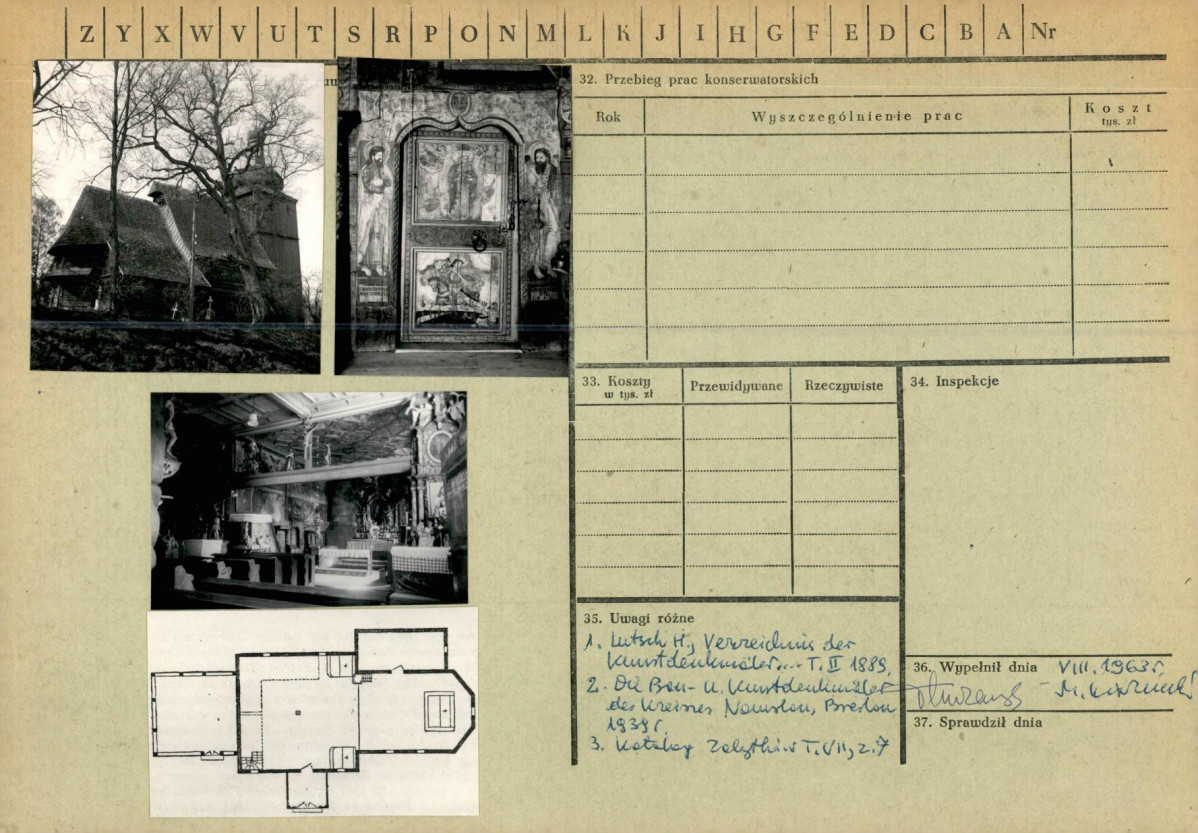 Z Y X W V U T S R P O N M L K J I H G F E D C B A Nr
32. Przebieg prac konserwatorskich
Rok
Wyszczególnienie prac
Koszt
tys. zł
33. Koszty
w tys. zł
Przewidywane
Rzeczywiste
34. Inspekcje
35. Uwagi różne
1. Lutsch H., Verzeichnis der
Kunstdenkmäler... T. II 1889.
2. Die Bau- u. Kunstdenkmäler
des Kreises Namslau, Breslau
1939 r.
3. Katalog Zabytków T. VII, z. 7
36. Wypełnił dnia VIII. 1963 r.
37. Sprawdził dnia